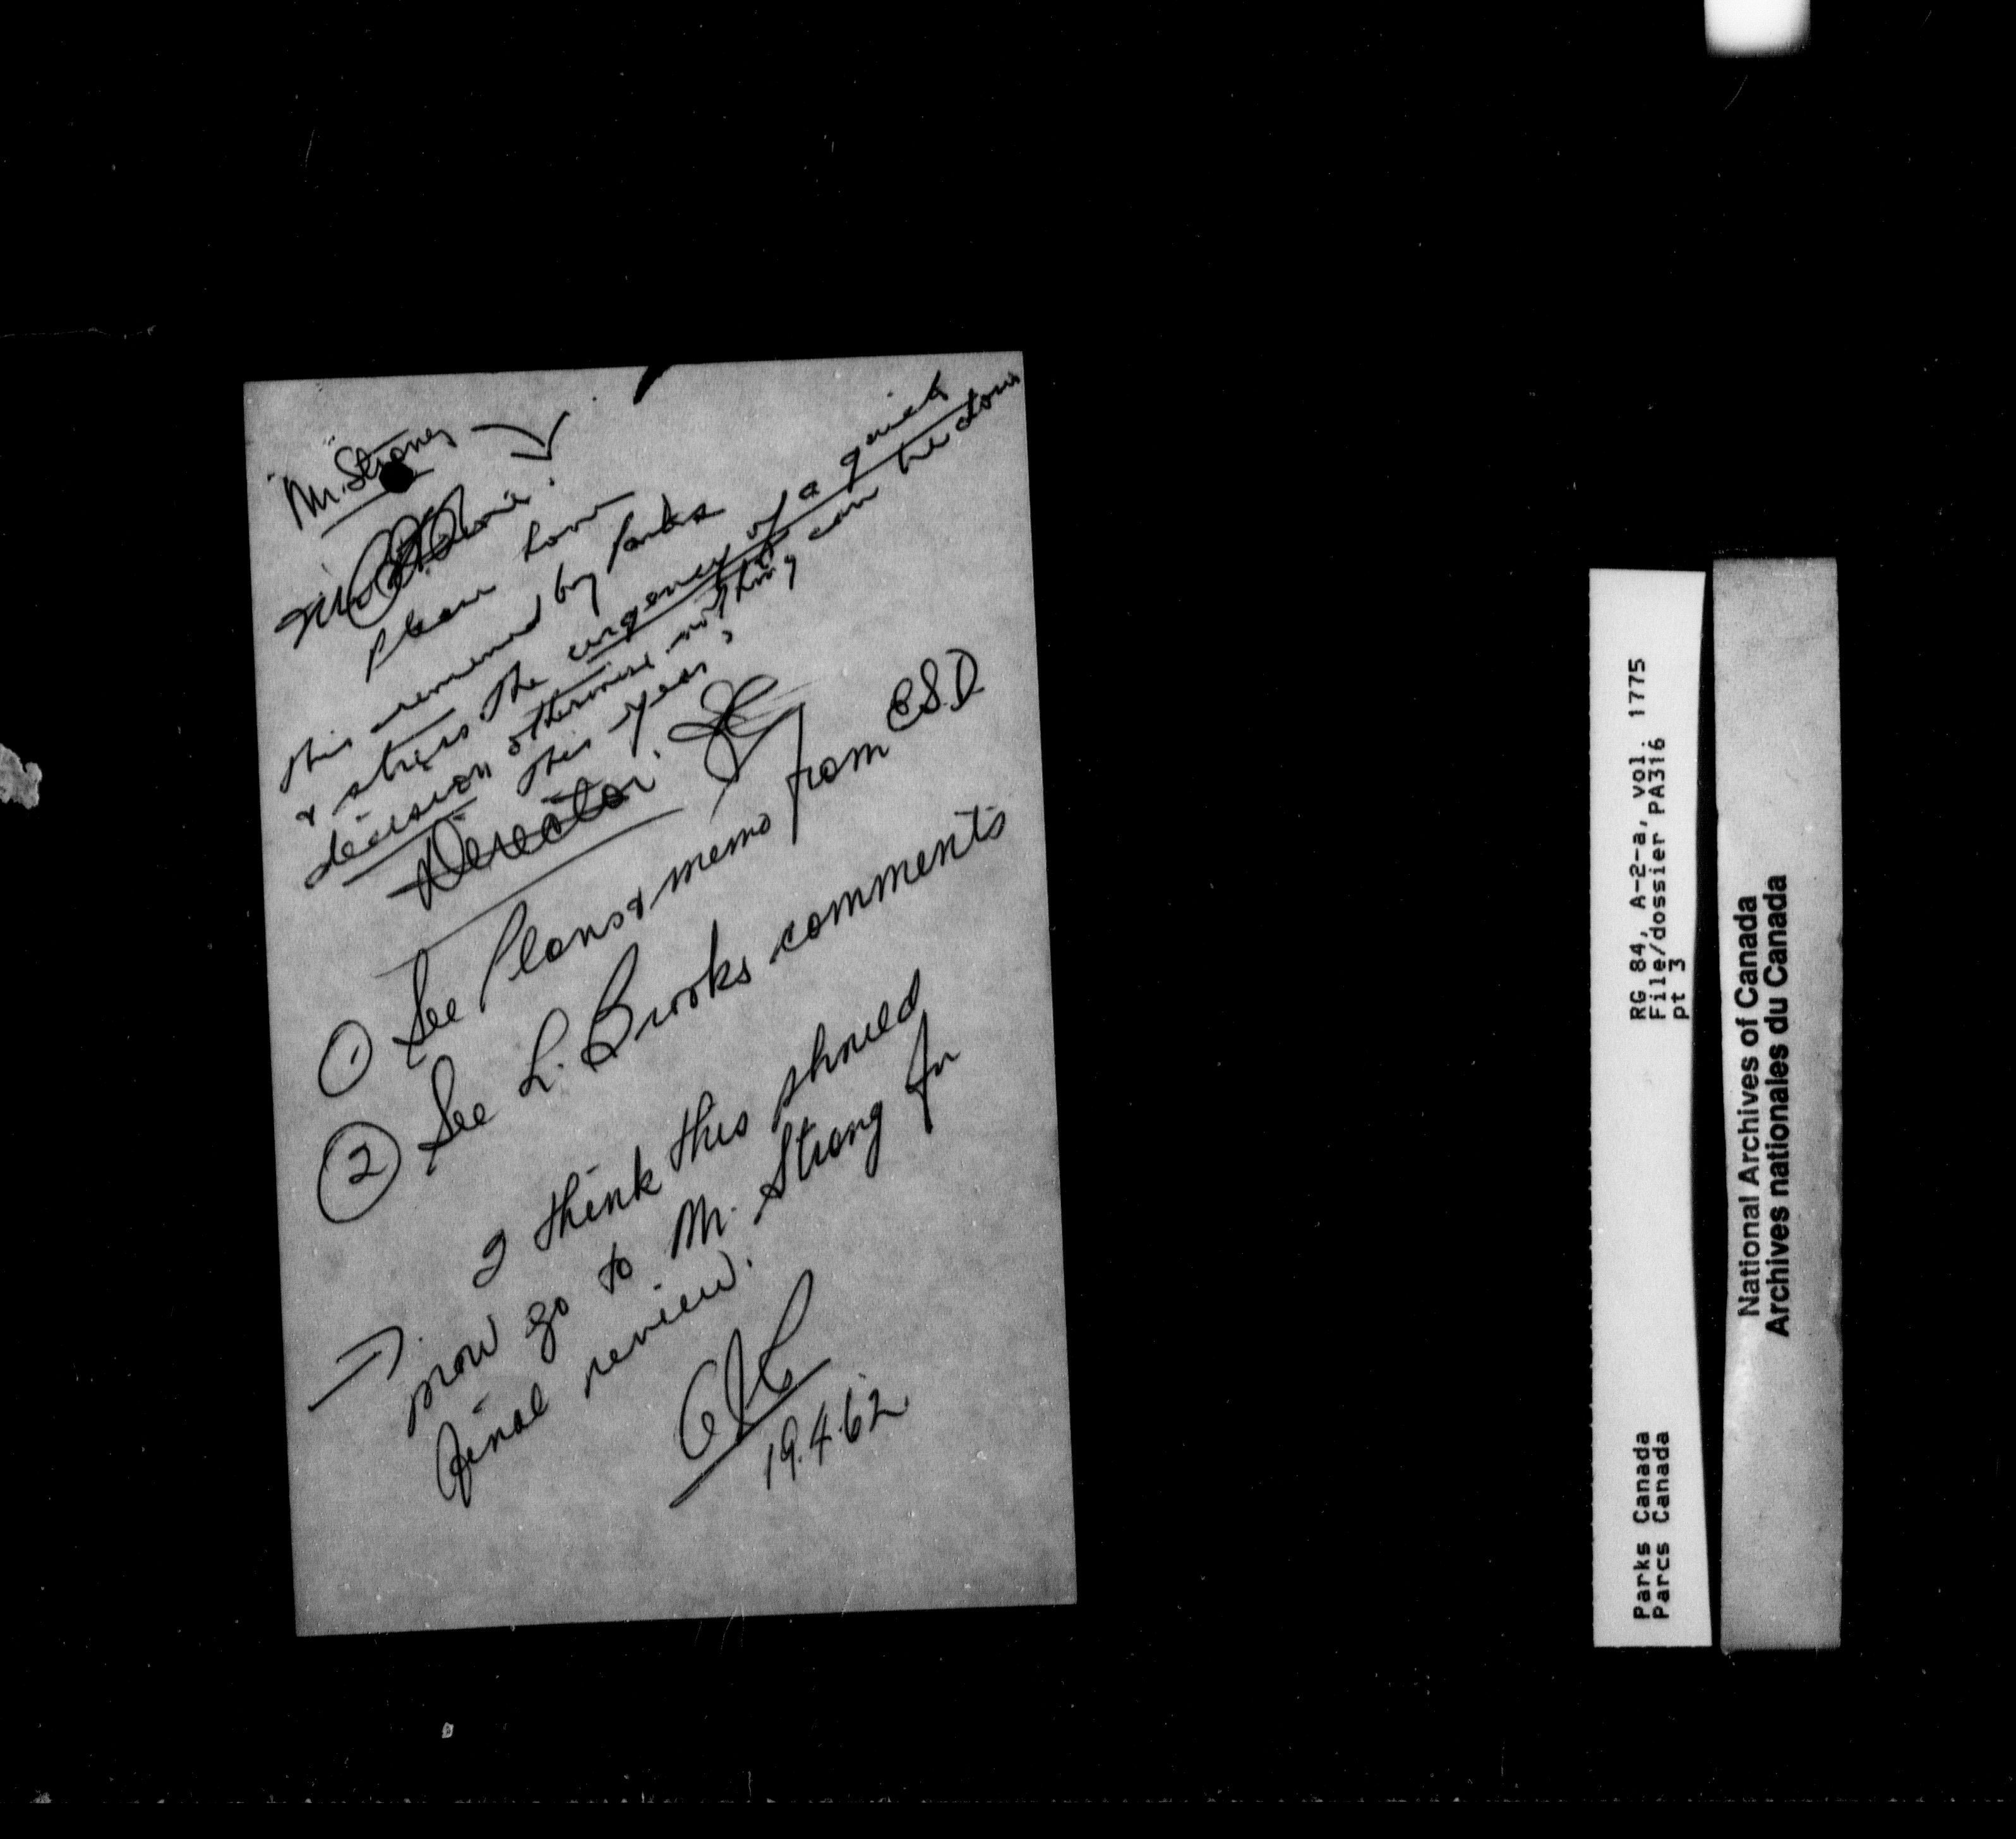 Mr. Strong
Please have
this reviewed by Parks
& stress the urgency of a quick
decision otherwise nothing can be done
this year.
Director
① See Plans & memo from ESD
② See L. Brooks comments
I think this should
now go to Mr. Strong for
final review.
19.4.62
RG 84, A-2-a, vol. 1775
File/dossier PA316
pt 3
Parks Canada
Parcs Canada
National Archives of Canada
Archives nationales du Canada